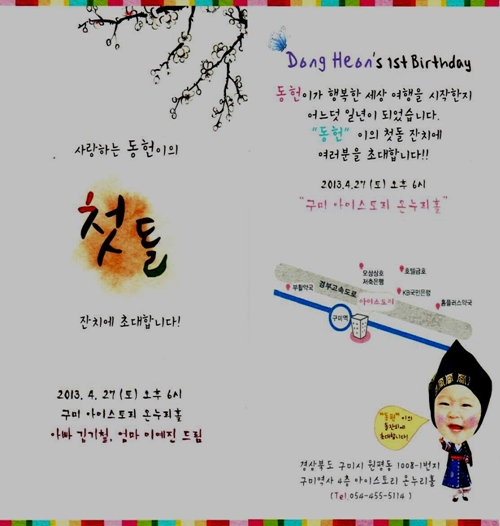 사랑하는 동헌이의
첫돌
잔치에 초대합니다!
2013. 4. 27 (토) 오후 6시
구미 아이스토리 온누리홀
아빠 김기철, 엄마 이예진 드림
Dong Heon's 1st Birthday
동헌이가 행복한 세상 여행을 시작한지
어느덧 일년이 되었습니다.
"동헌" 이의 첫돌 잔치에
여러분을 초대합니다!!
2013.4.27 (토) 오후 6시
"구미 아이스토리 온누리홀"
부활약국
경부고속도로
오성상호
저축은행
호텔금호
아이스토리
KB국민은행
홈플러스약국
구미역
"동헌" 이의
돌잔치에
초대합니다!
경상북도 구미시 원평동 1008-1번지
구미역사 4층 아이스토리 온누리홀
(Tel.054-455-5114 )